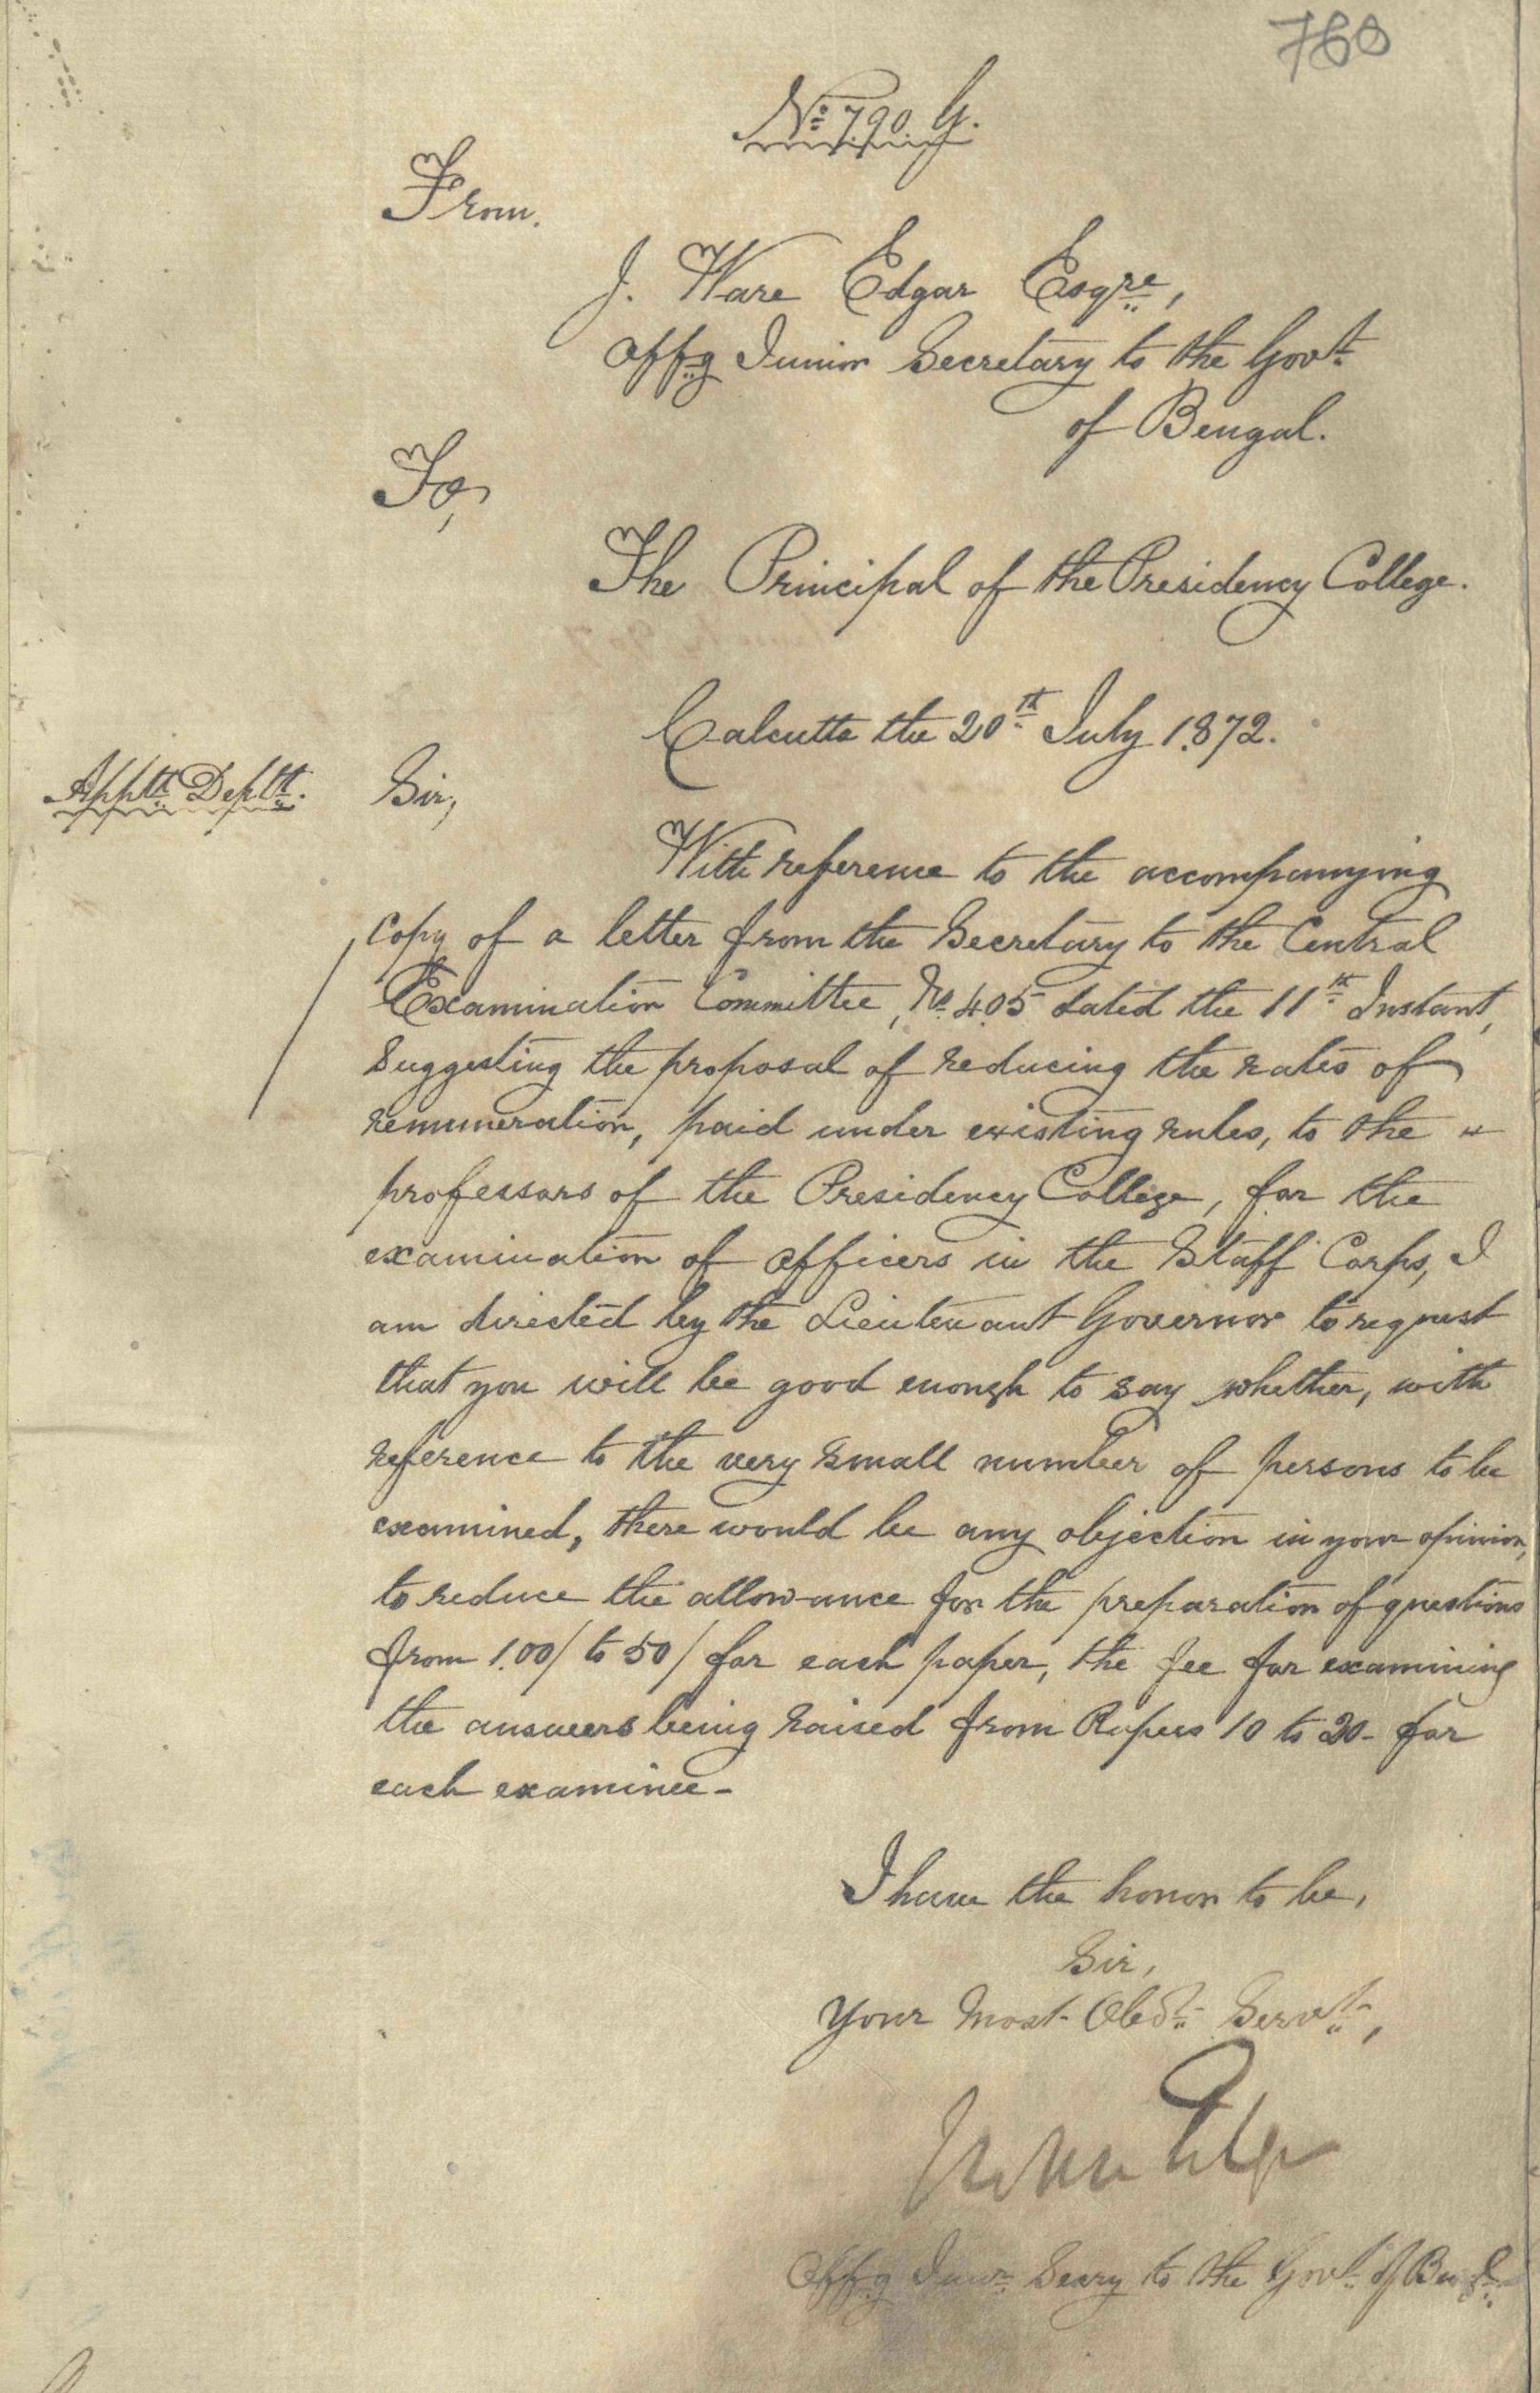 760
No. 790 G.
From.
J. Ware Edgar Esqre,
Offg Junior Secretary to the Govt.
of Bengal.
To,
The Principal of the Presidency College.
Calcutta the 20th July 1872.
Apptt. Deptt.
Sir,
With reference to the accompanying
copy of a letter from the Secretary to the Central
Examination Committee, No. 405 dated the 11th Instant,
suggesting the proposal of reducing the rates of
remuneration, paid under existing rules, to the
professors of the Presidency College, for the
examination of officers in the Staff Corps, I
am directed by the Lieutenant Governor to request
that you will be good enough to say whether, with
reference to the very small number of persons to be
examined, there would be any objection in your opinion,
to reduce the allowance for the preparation of questions
from 100/ to 50/ for each paper, the fee for examining
the answers being raised from Rupees 10 to 20- for
each examinee-
I have the honor to be,
Sir,
Your Most Obdt. Servt.,
Offg Junr. Secry to the Govt. of Bengl.